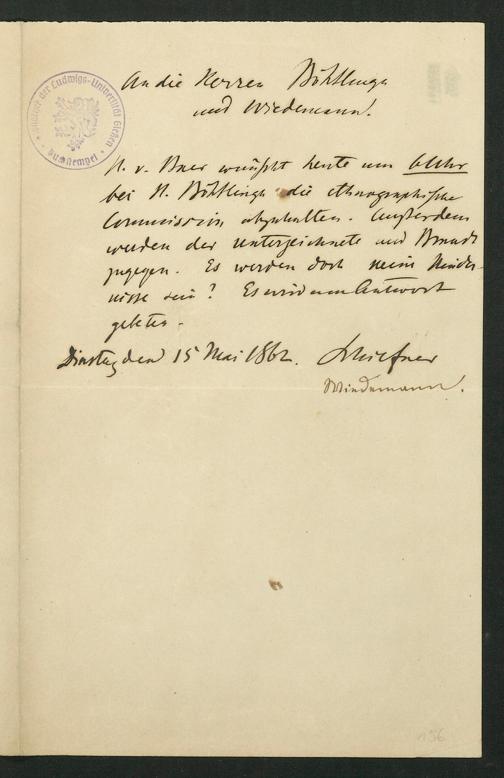 An die Herren Böhtlingk
und Wiedemann.
H. v. Baer wünscht heute um 6 Uhr
bei H. Böhtlingk die ethnographische
Commission abzuhalten. Außerdem
werden der Unterzeichnete und Brandt
zugegen. Es werden doch keine Hinder-
nisse sein? Es wird um Antwort
gebeten.
Dinstag den 15 Mai 1862. Schiefner
Wiedemann.
der Ludwigs-Universität Gießen
156